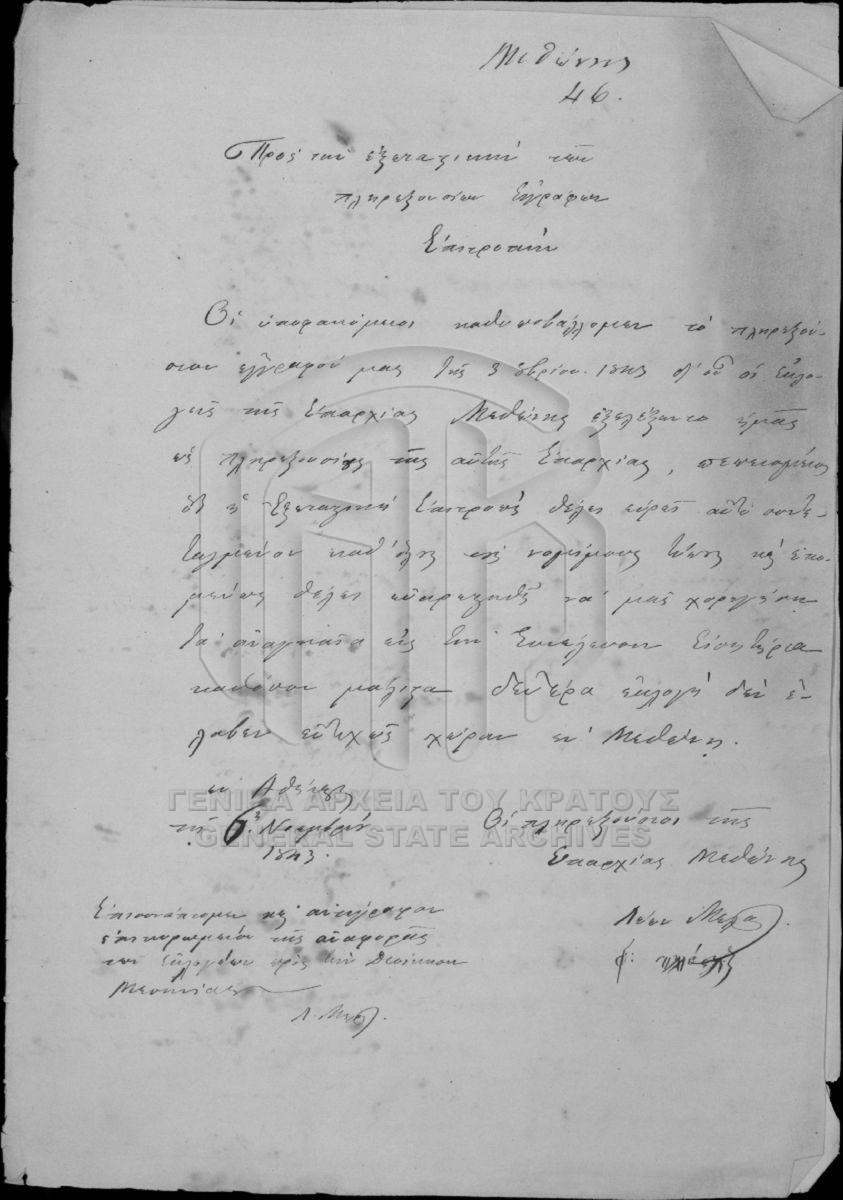 Μεθώνης
46.
Πρὸς τὴν ἐξεταστικὴν τῶν
πληρεξουσίων ἐγγράφων
Ἐπιτροπὴν
Οἱ ὑποφαινόμενοι καθυποβάλλομεν τὸ πληρεξού-
σιον ἔγγραφόν μας τῆς 3 8βρίου 1843 δι' οὗ οἱ ἐκλο-
γεῖς τῆς Ἐπαρχίας Μεθώνης ἐξελέξαντο ἡμᾶς
ὡς πληρεξουσίους τῆς αὐτῆς Ἐπαρχίας, πεπεισμένοι
ὅτι ἡ Ἐξεταστικὴ Ἐπιτροπὴ θέλει εὑρεῖ αὐτὸ συντε-
ταγμένον καθ' ὅλους τοὺς νομίμους τύπους καὶ ἑπο-
μένως θέλει εὐαρεστηθῆ νὰ μᾶς χορηγήση
τὰ ἀναγκαῖα εἰς τὴν Συνέλευσιν Εἰσητήρια
καθόσον μάλιστα δευτέρα ἐκλογὴ δὲν ἔ-
λαβεν εὐτυχῶς χώραν ἐν Μεθώνη.
ἐν Ἀθήναις
τῇ 6 Νοεμβρίου
1843.
Οἱ πληρεξούσιοι τῆς
Ἐπαρχίας Μεθώνης
Λέων Μεσσ
Ἐπισυνάπτομεν καὶ ἀντίγραφον
ἐπικυρωμένον τῆς ἀναφορᾶς
τῶν ἐκλογέων πρὸς τὴν Διοίκησιν
Μεσσηνίας
Λ. Μεσσ.
ΓΕΝΙΚΑ ΑΡΧΕΙΑ ΤΟΥ ΚΡΑΤΟΥΣ
GENERAL STATE ARCHIVES